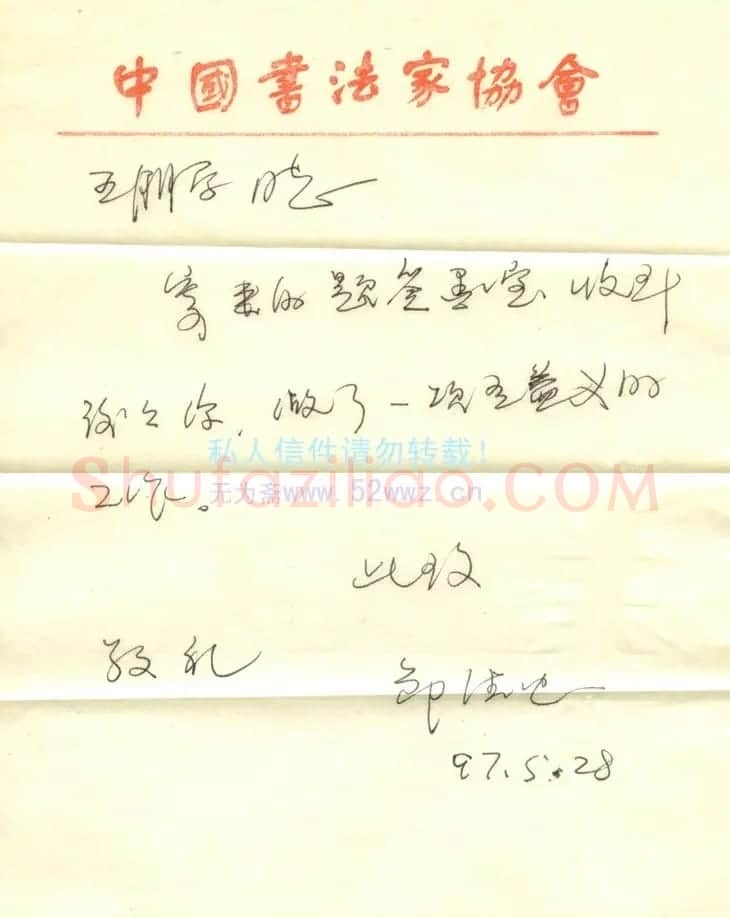 中國書法家協會
王朋学同志
寄来的题签墨宝收到
谢谢你,做了一项有益义的
私人信件请勿转载!
Shufaziliao.COM
无为斋www.52wwz.cn
工作。
此致
敬礼
邹德忠
97.5.28